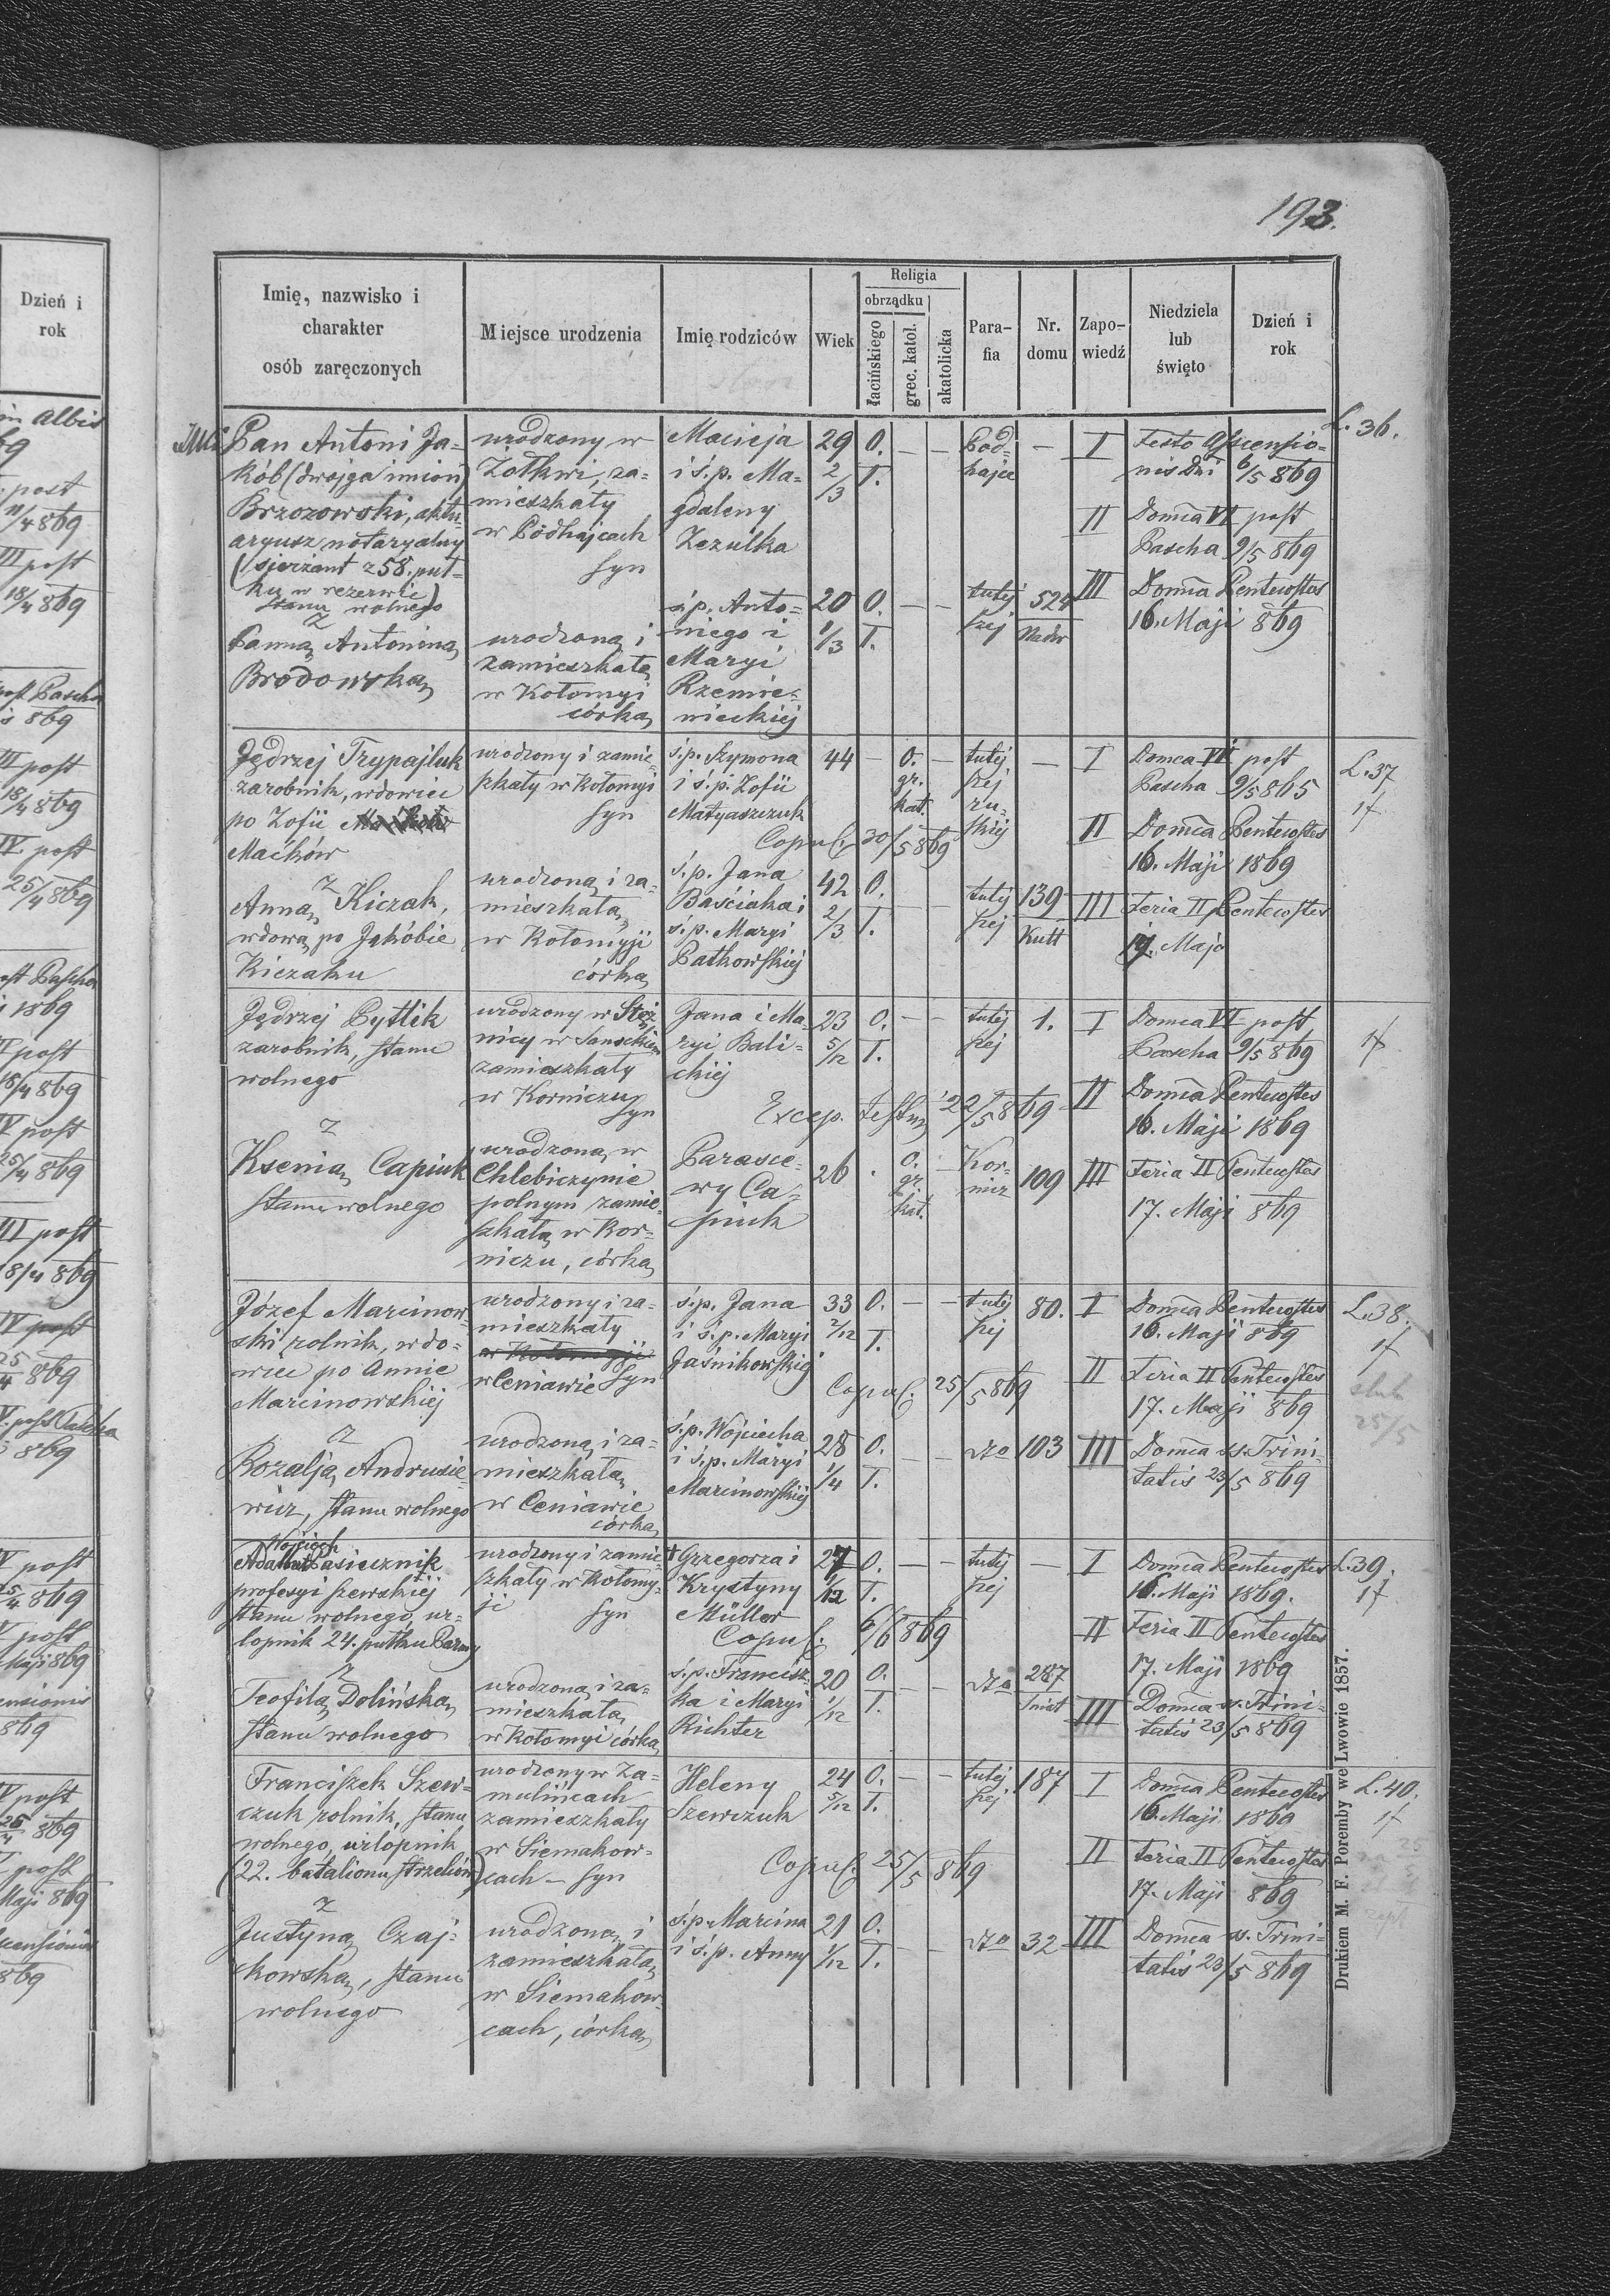 193.
Dzień i
rok
Imię, nazwisko i
charakter
osób zaręczonych
Miejsce urodzenia
Imię rodziców
Wiek
Religia
obrządku
łacińskiego
grec. katol.
akatolicka
Para-
fia
Nr.
domu
Zapo-
wiedź
Niedziela
lub
święto
Dzień i
rok
L. 36.
Pan Antoni Ja-
kób (dwojga imion)
Brzozowski, aktu-
aryusz notaryalny
(sierżant z 58. puł-
ku w rezerwie)
stanu wolnego
z
Panną Antoniną
Brodowską
urodzony w
Żółkwi, za-
mieszkały
w Podhajcach
syn
urodzoną i
zamieszkałą
w Kołomyi
córką
Macieja
i ś.p. Ma-
gdaleny
Zezulka
ś.p. Anto-
niego i
Maryi
Rzemie-
nieckiej
29 2/3
O. – –
Ł.
20 1/3
O. – –
Ł.
Pod-
hajce
–
tutej
szej
524
Nadw
I Festo Ascensio-
nis Dni 6/5 869
II Domca VI post
Pascha 9/5 869
III Domca Pentecostes
16. Maji 869
L. 37
Jędrzej Trypajluk
zarobnik, wdowiec
po Zofii
Maćków
z
Anną Kiczak,
wdową po Jakóbie
Kiczaku
urodzony i zamie-
szkały w Kołomyi
syn
urodzoną i za-
mieszkałą
w Kołomyji
córką
ś.p. Szymona
i ś.p. Zofii
Matyaszczuk
Copul. 30/5 869
ś.p. Jana
Baściaka i
ś.p. Maryi
Patkowskiej
44 – O. –
gr.
kat.
42 2/3
O. – –
Ł.
tutej
szej
ru-
skiej
–
tutej
szej
139
Kutt
I Domca VI post
Pascha 9/5 865
II Domca Pentecostes
16. Maji 1869
III Feria II Pentecostes
17. Maja
Jędrzej Pytlik
zarobnik, stanu
wolnego
z
Ksenią Capiuk
stanu wolnego
nicy w Sanockiem
zamieszkały
w Korniczu
syn
urodzoną w
Chlebiczynie
polnym zamie-
szkałą w Kor-
niczu, córką
Jana i Ma-
ryi Bali-
ckiej
Excep. testm 22/5 869
Parasce-
wy Ca-
piuk
23 5/12
O. – –
Ł.
26 . O. –
gr.
kat.
tutej
szej
1.
Kor-
nicz
109
I Domca VI post
Pascha 9/5 869
II Domca Pentecostes
16. Maji 1869
III Feria II Pentecostes
17. Maji 869
L. 38.
Józef Marcinow-
ski rolnik, wdo-
wiec po Annie
Marcinowskiej
z
Rozalją Andrusie-
wicz, stanu wolnego
urodzony i za-
mieszkały
w Kołomyji
w Ceniawie syn
urodzoną i za-
mieszkałą
w Ceniawie
córką
ś.p. Jana
i ś.p. Maryi
Jaśnikowskiej
Copul. 25/5 869
ś.p. Wojciecha
i ś.p. Maryi
Marcinowskiej
33 2/12
O. – –
Ł.
28 1/4
O. – –
Ł.
tutej
szej
80.
dto 103
I Domca Pentecostes
16. Maji 869
II Feria II Pentecostes
17. Maji 869
III Domca ss. Trini-
tatis 23/5 869
ślub
25/5
L. 39.
Wojciech
Pasiecznik
profesyi szewskiej
stanu wolnego, ur-
lopnik 24. pułku Parmy
z
Teofilą Dolińską
stanu wolnego
urodzony i zamie-
szkały w Kołomy-
ji syn
urodzoną i za-
mieszkałą
w Kołomyi córką
† Grzegorza i
Krystyny
Müller
Copul. 6/6 869
ś.p. Francisz-
ka i Maryi
Richter
27 1/12
O. – –
Ł.
20 1/12
O. – –
Ł.
tutej
szej
–
dto 287
Śniat
I Domca Pentecostes
16. Maji 1869.
II Feria II Pentecostes
17. Maji 1869
III Domca ss. Trini-
tatis 23/5 869
L. 40.
Franciszek Szew-
czuk rolnik, stanu
wolnego, urlopnik
(22. batalionu strzelców)
z
Justyną Czaj-
kowską, stanu
wolnego
urodzony w Za-
mulińcach
zamieszkały
w Siemakow-
cach – syn
urodzoną i
zamieszkałą
w Siemakow-
cach, córką
Heleny
Szewczuk
Copul. 25/5 869
ś.p. Marcina
i ś.p. Anny
24 5/12
O. – –
Ł.
21 1/12
O. – –
Ł.
tutej
szej
187
dto 32
I Domca Pentecostes
16. Maji 1869
II Feria II Pentecostes
17. Maji 869
III Domca ss. Trini-
tatis 23/5 869
Drukiem M. F. Poremby we Lwowie 1857.